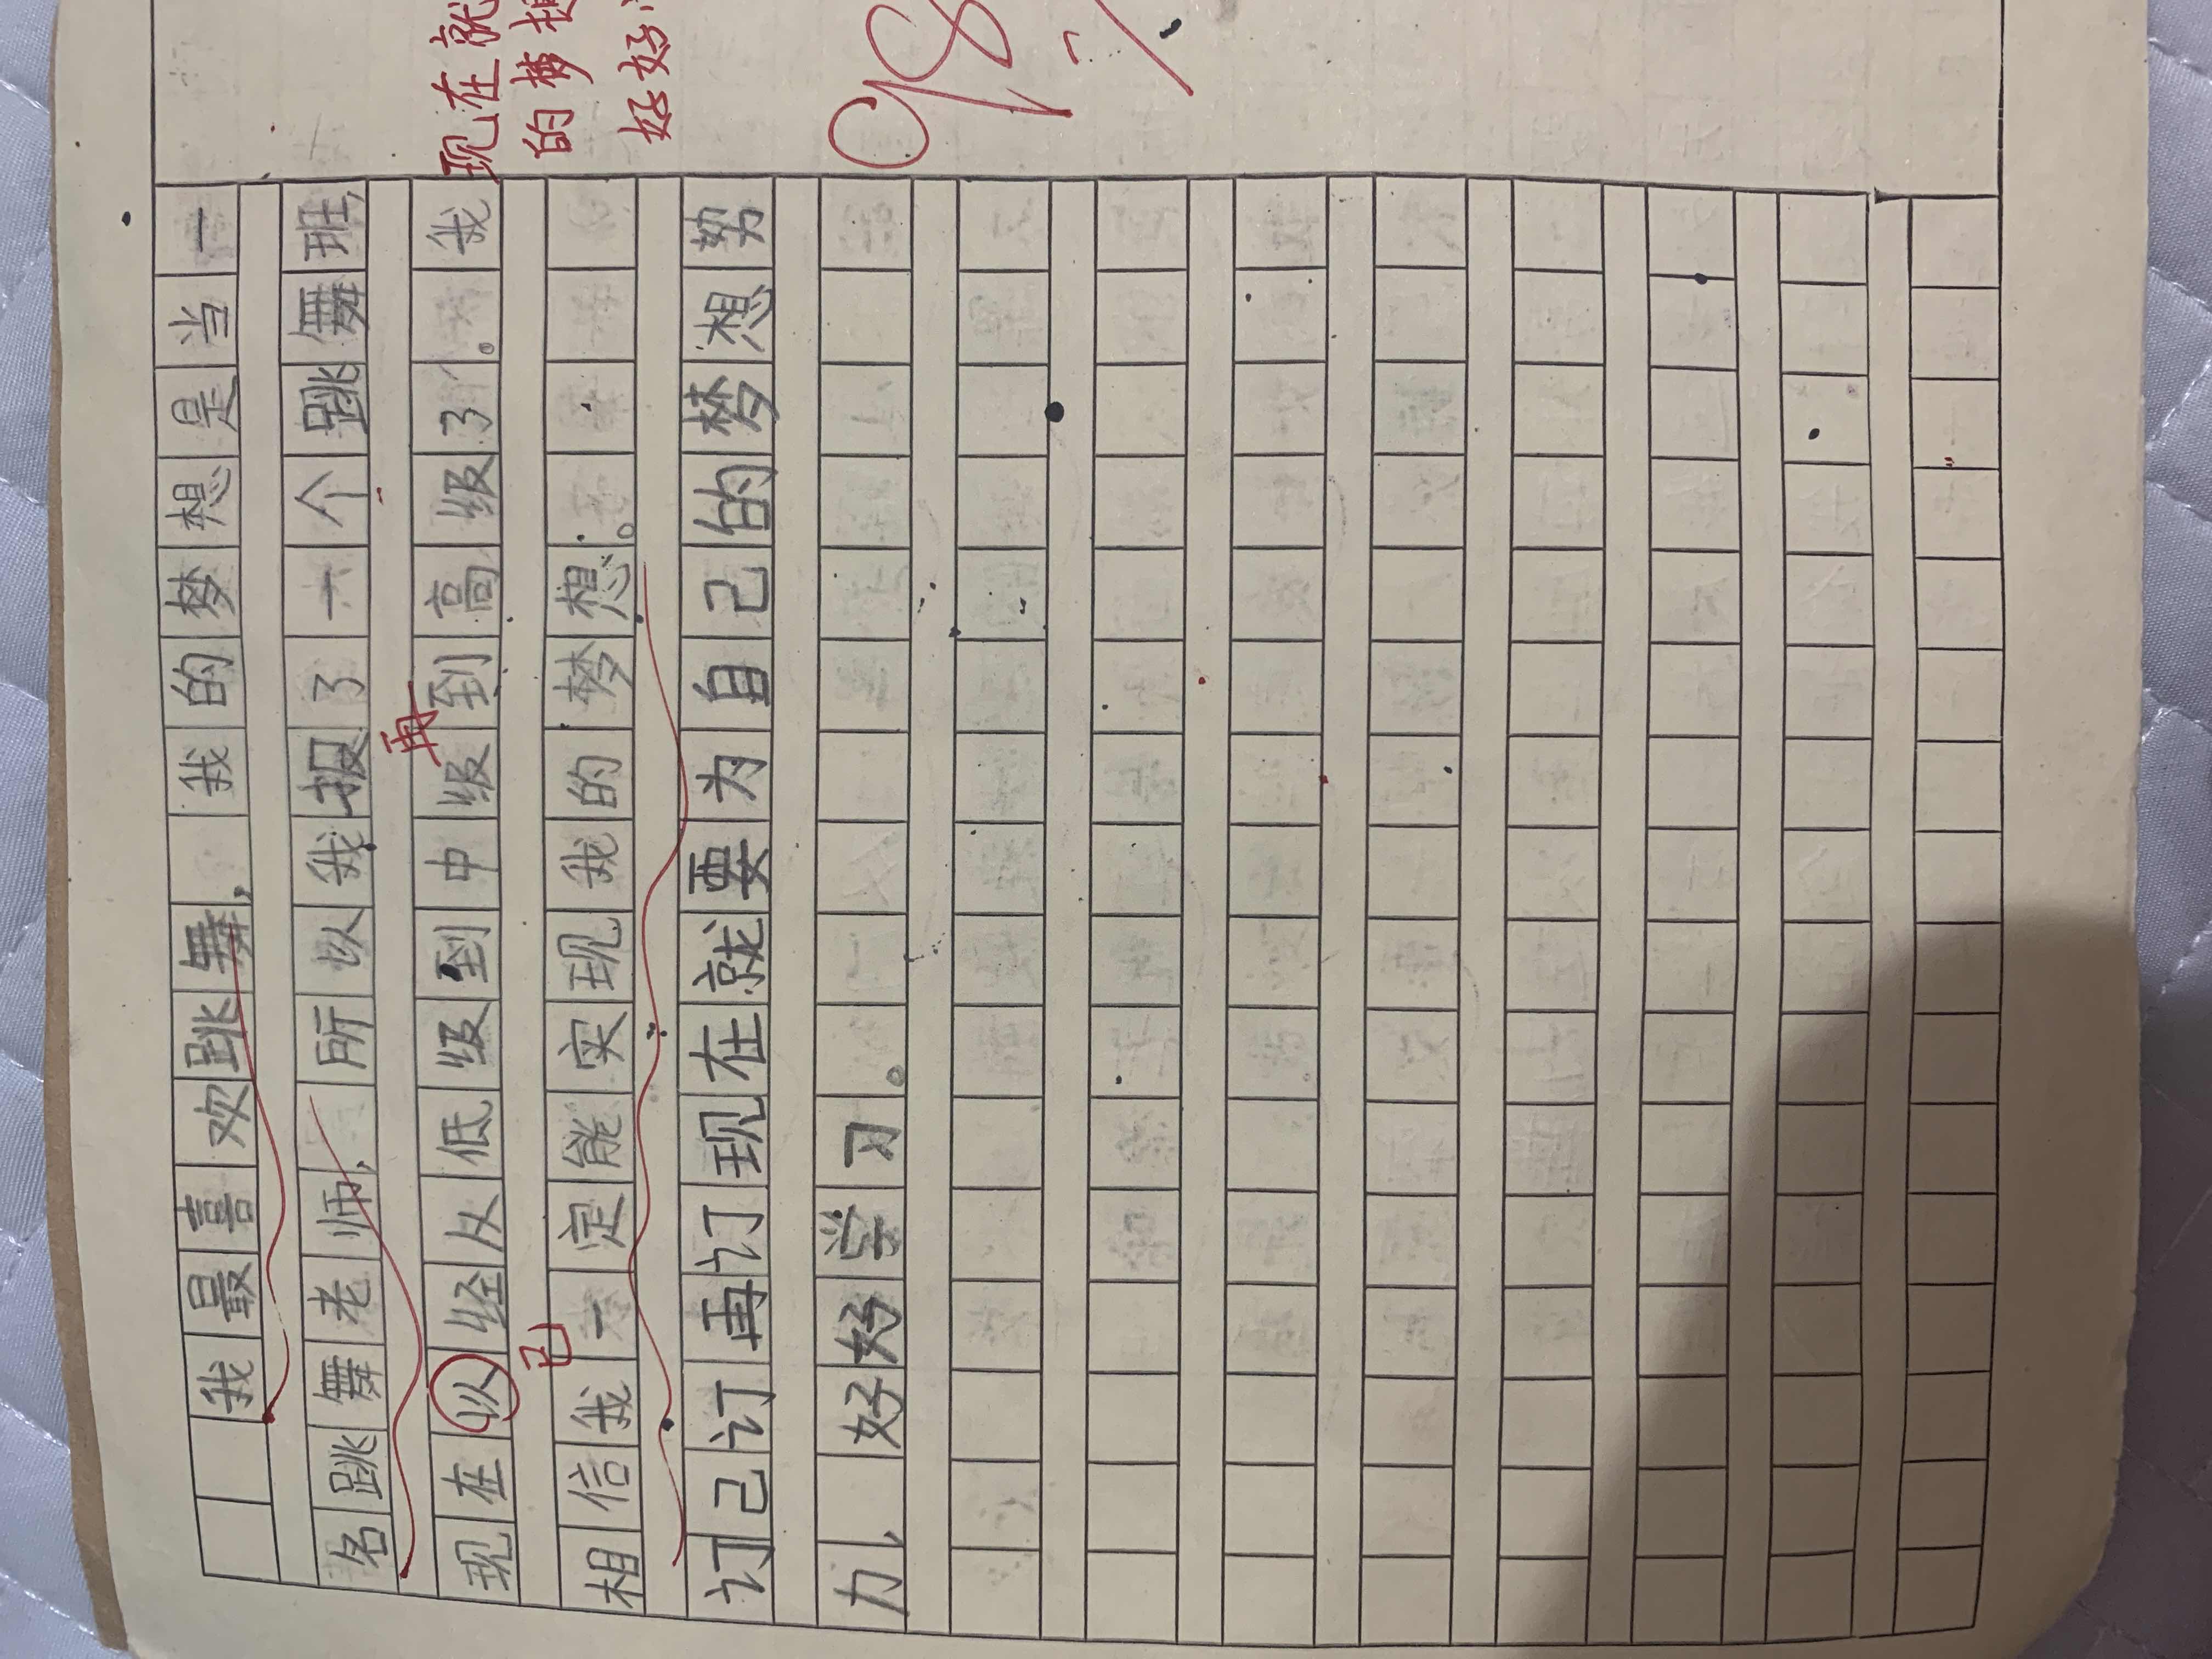 我最喜欢跳舞，我的梦想是当一
名跳舞老师，所以我报了一个跳舞班，
再
现在以经从低级到中级到高级了。我
已
相信我一定能实现我的梦想。
订己订再订现在就要为自己的梦想努
力，好好学习。
现在就
的梦想
好好
98